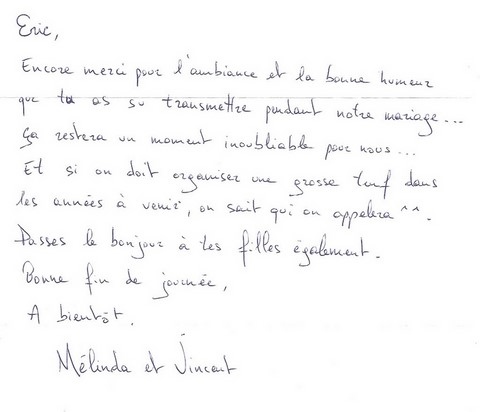 Eric,
Encore merci pour l'ambiance et la bonne humeur
que tu as su transmettre pendant notre mariage...
ça restera un moment inoubliable pour nous...
Et si on doit organiser une grosse teuf dans
les années à venir, on sait qui on appelera ^^.
Passes le bonjour à tes filles également.
Bonne fin de journée,
A bientôt.
Mélinda et Vincent